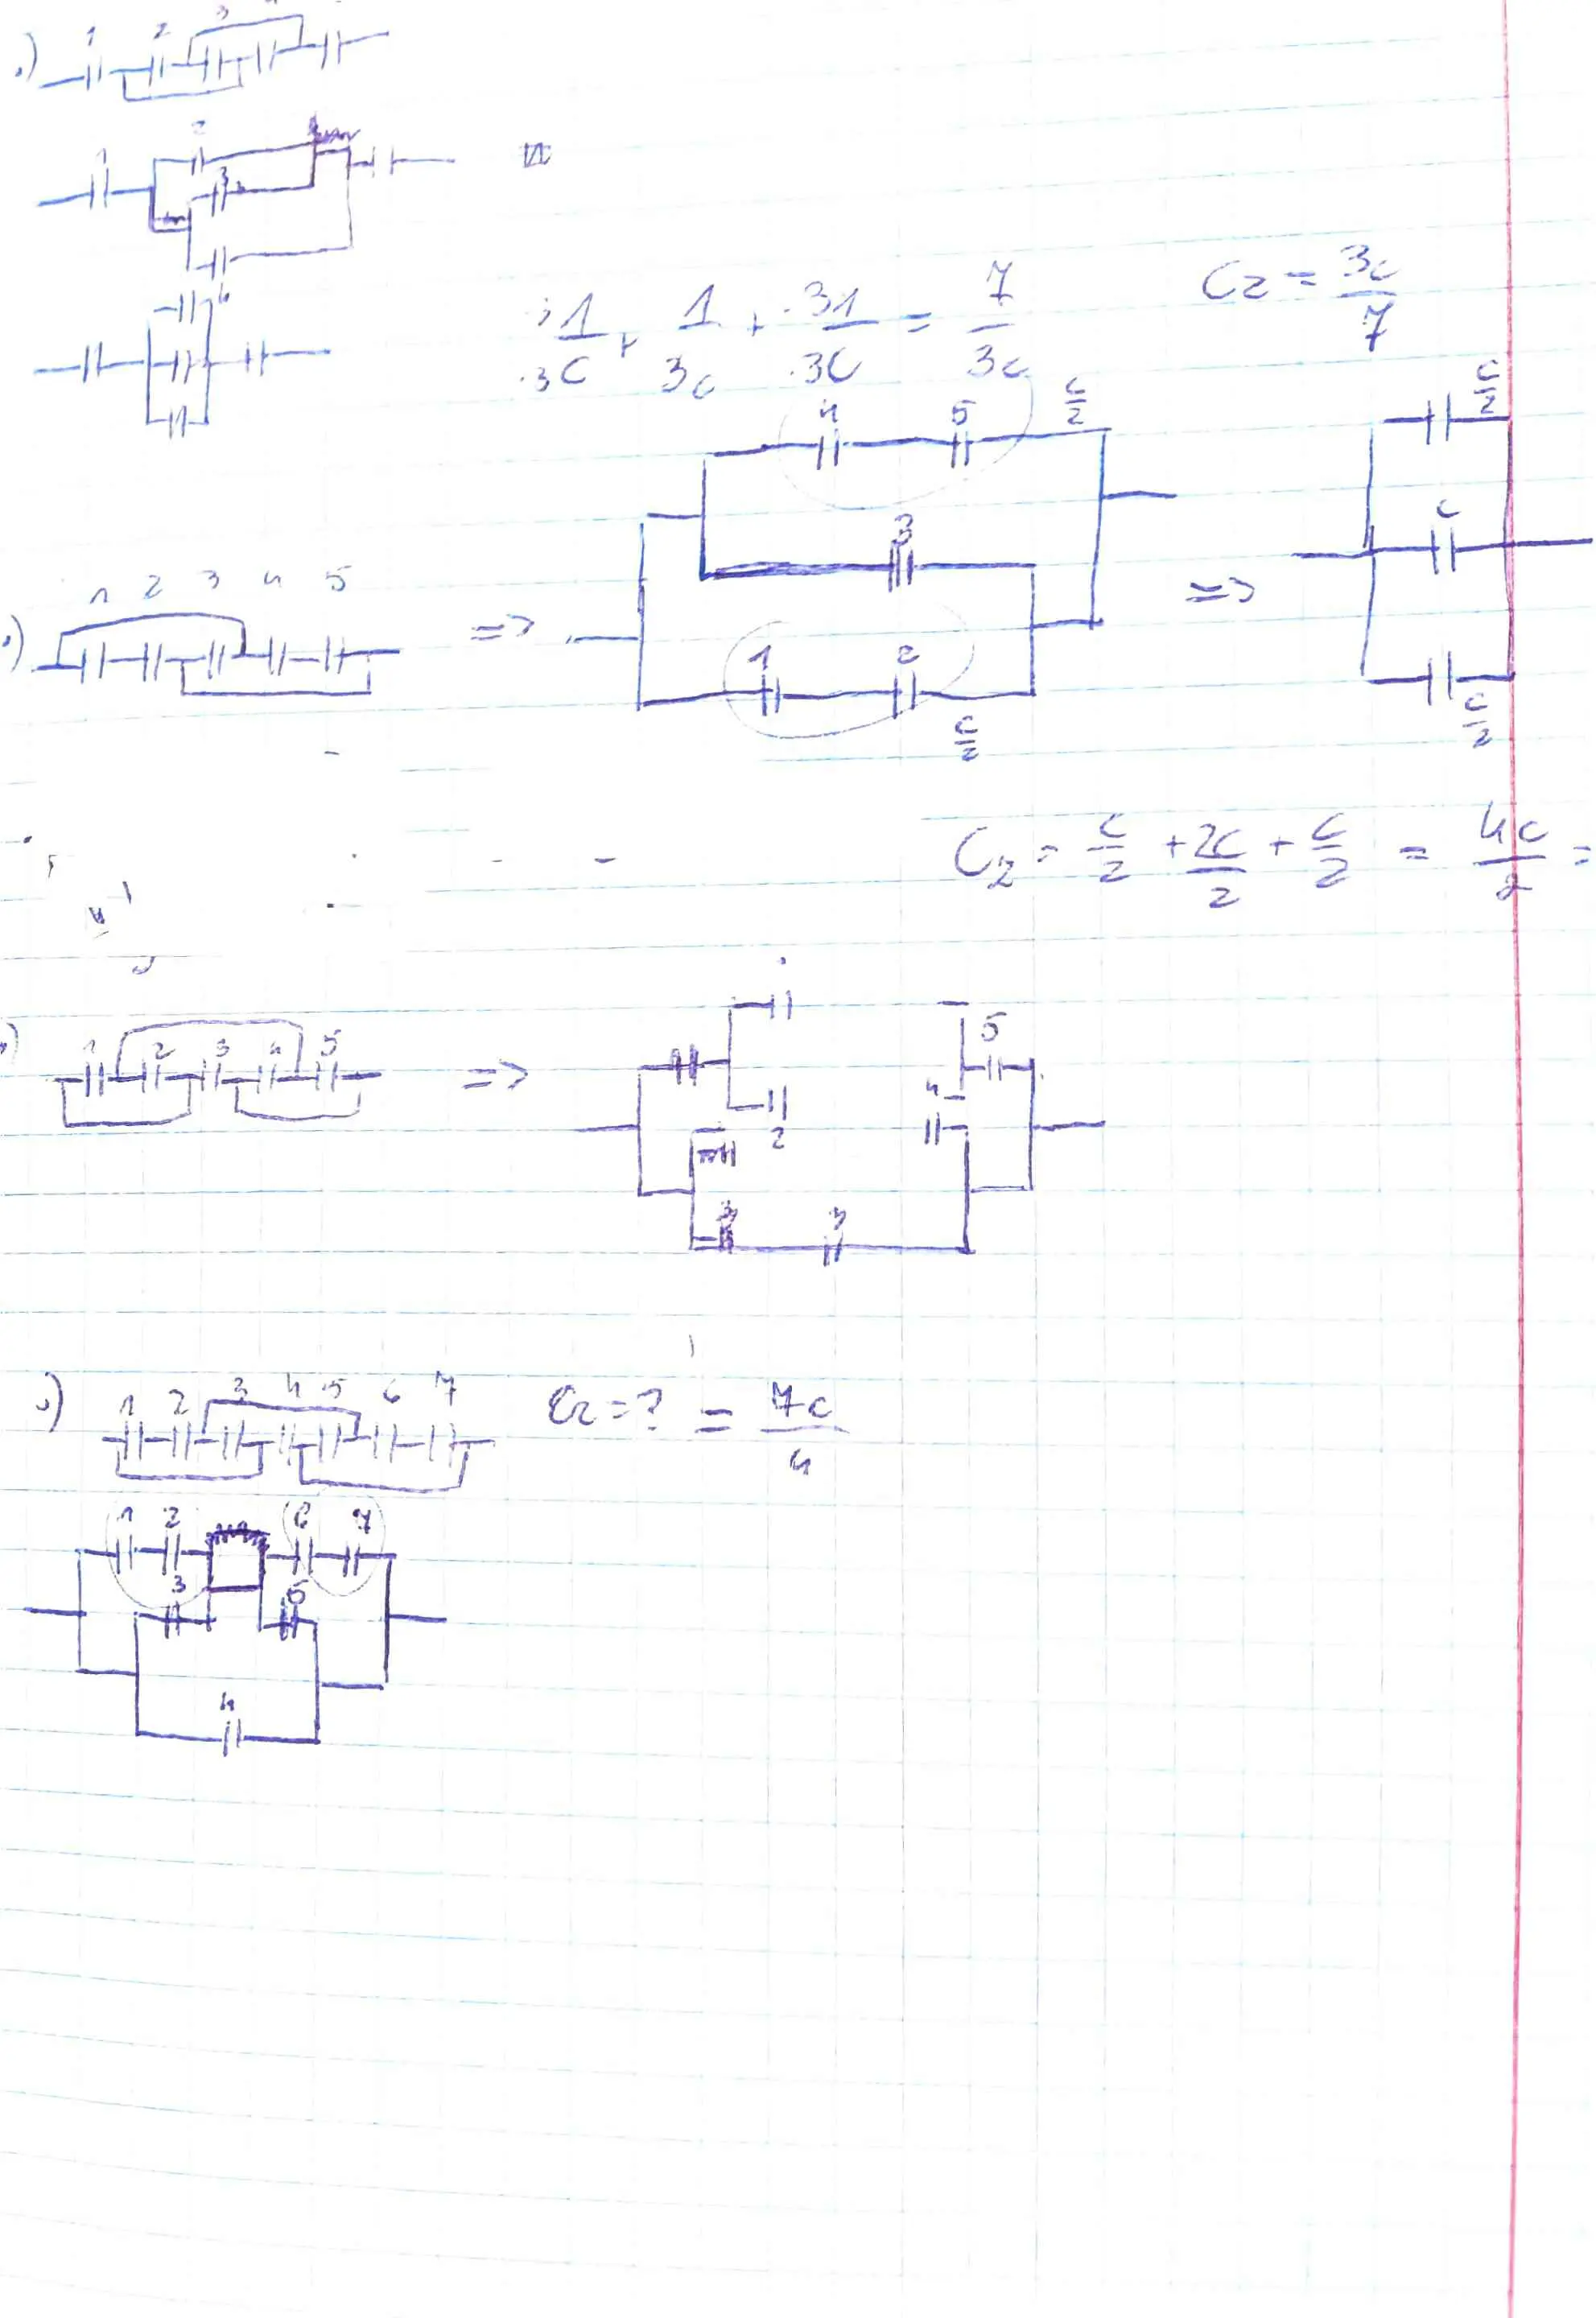 1 2 3
2
1
3
1/3C + 1/3C + 31/3C = 7/3C
Cz = 3C/7
4 5 C/2
C/2
3
C
1 2 3 4 5
=> =>
1 2
C/2 C/2
C2 = C/2 + 2C/2 + C/2 = 4C/2 =
1 2 3 4 5 => 5
4
2
3 3
1 2 3 4 5 6 7 Cz = ? = 7C/4
1 2 6 7
3 5
4